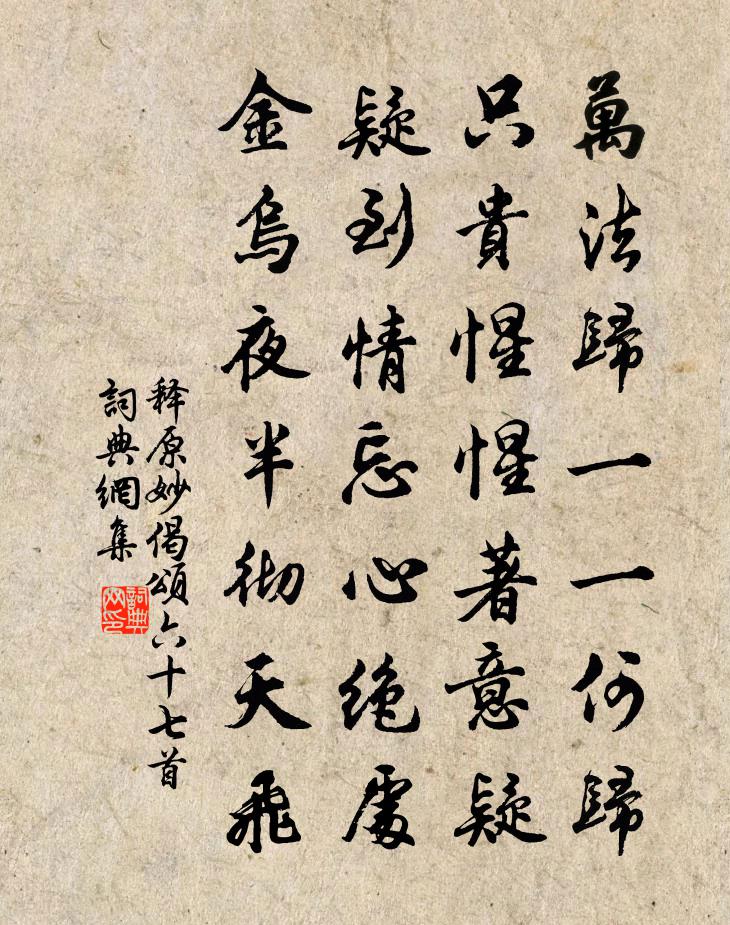 萬法歸一一何歸
只貴惺惺著意疑
疑到情忘心絶處
金烏夜半彻天飛
释原妙偈頌六十七首
詞典網集
詞典
网印